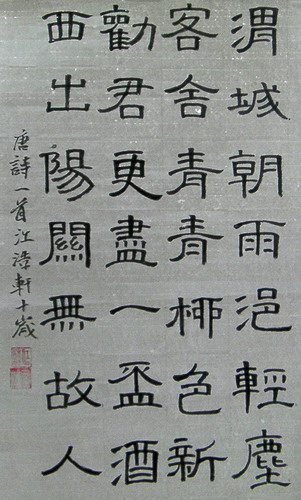 渭城朝雨浥輕塵
客舍青青柳色新
勸君更盡一盃酒
西出陽關無故人
唐詩一首江漳軒十歲